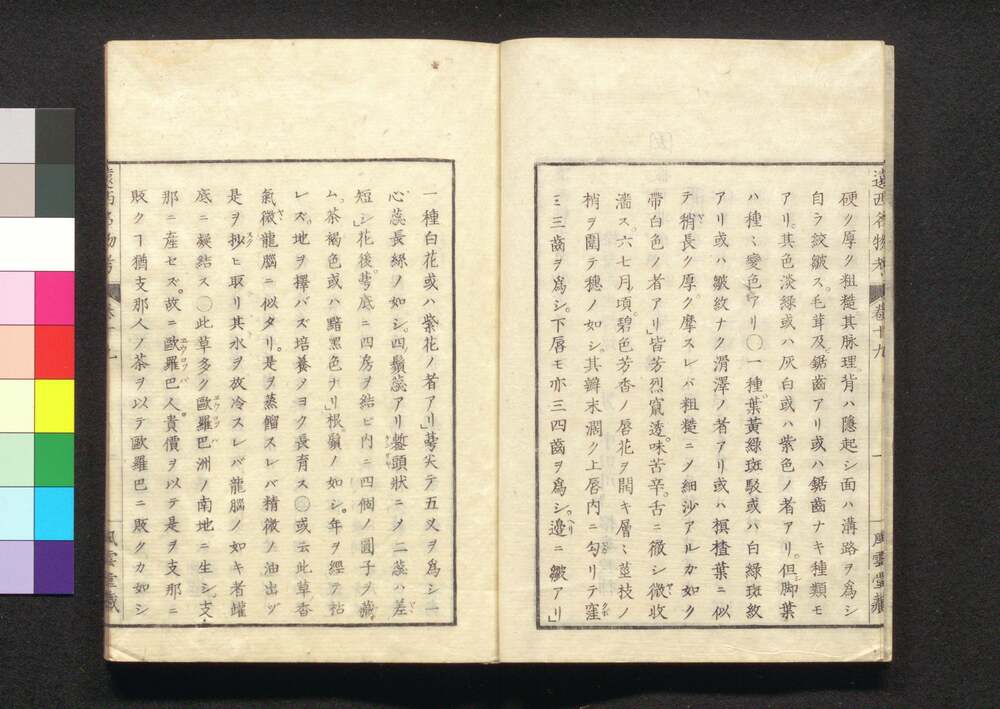 遠西名物考 卷十九 一 風雲堂藏
硬ク厚ク粗糙其脉理背ハ隱起シ面ハ溝路ヲ爲シ
自ラ絞皺ス。毛茸及鋸齒アリ或ハ鋸齒ナキ種類モ
アリ。其色淡綠或ハ灰白或ハ紫色ノ者アリ。但脚葉
ハ種々變色アリ〇一種葉黃綠斑駁或ハ白綠斑紋
アリ或ハ皺紋ナク滑澤ノ者アリ或ハ榠樝葉ニ似
テ稍長ク厚ク摩スレバ粗糙ニメ細沙アルカ如ク
帶白色ノ者アリ」皆芳烈竄透。味苦辛。舌ニ徹シ微收
濇ス。六七月頃。碧色芳香ノ唇花ヲ開キ層々莖枝ノ
梢ヲ圍テ穗ノ如シ其瓣末濶ク上唇内ニ勾リテ窪
ミ三齒ヲ爲シ。下唇モ亦三四齒ヲ爲シ。邊ニ皺アリ」
一種白花或ハ紫花ノ者アリ」萼尖テ五叉ヲ爲シ一
心蕊長絲ノ如シ。四鬚蕊アリ整頭狀ニメ二蕊ハ差
短シ」花後萼底ニ四房ヲ結ビ内ニ四個ノ圓子ヲ藏
ム。茶褐色或ハ黯黑色ナリ」根鬚ノ如シ。年ヲ經テ枯
レズ。地ヲ擇バズ培養ヲヨク長育ス〇或云此草香
氣微龍腦ニ似タリ。是ヲ蒸餾スレバ精微ノ油出ヅ
是ヲ抄ヒ取リ其水ヲ故冷スレバ龍腦ノ如キ者罐
底ニ凝結ス〇此草多ク歐羅巴洲ノ南地ニ生シ。支
那ニ産セズ。故ニ歐羅巴人。貴價ヲ以テ是ヲ支那ニ
販クヿ猶支那人ノ茶ヲ以テ歐羅巴ニ販クカ如シ
遠西名物考 卷十九